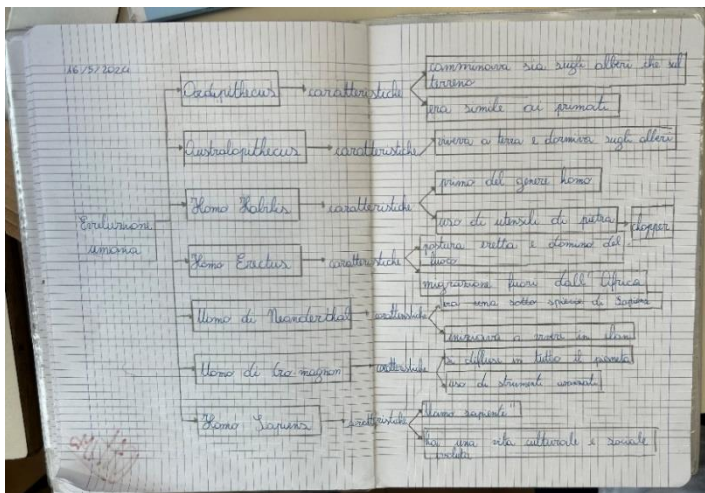 16/5/2024
Ardipithecus caratteristiche camminava sia sugli alberi che sul
terreno
era simile ai primati
Australopithecus caratteristiche viveva a terra e dormiva sugli alberi
Homo Habilis caratteristiche primo del genere homo
uso di utensili di pietra chopper
Evoluzione
umana
Homo Erectus caratteristiche postura eretta e dominio del
fuoco
migrazione fuori dall'Africa
Uomo di Neanderthal caratteristiche era una sotto specie di Sapiens
iniziava a vivere in clan
Uomo di Cro-magnon caratteristiche si diffuse in tutto il pianeta
uso di strumenti avanzati
Homo Sapiens caratteristiche "Uomo sapiente"
ha una vita culturale e sociale
evoluta